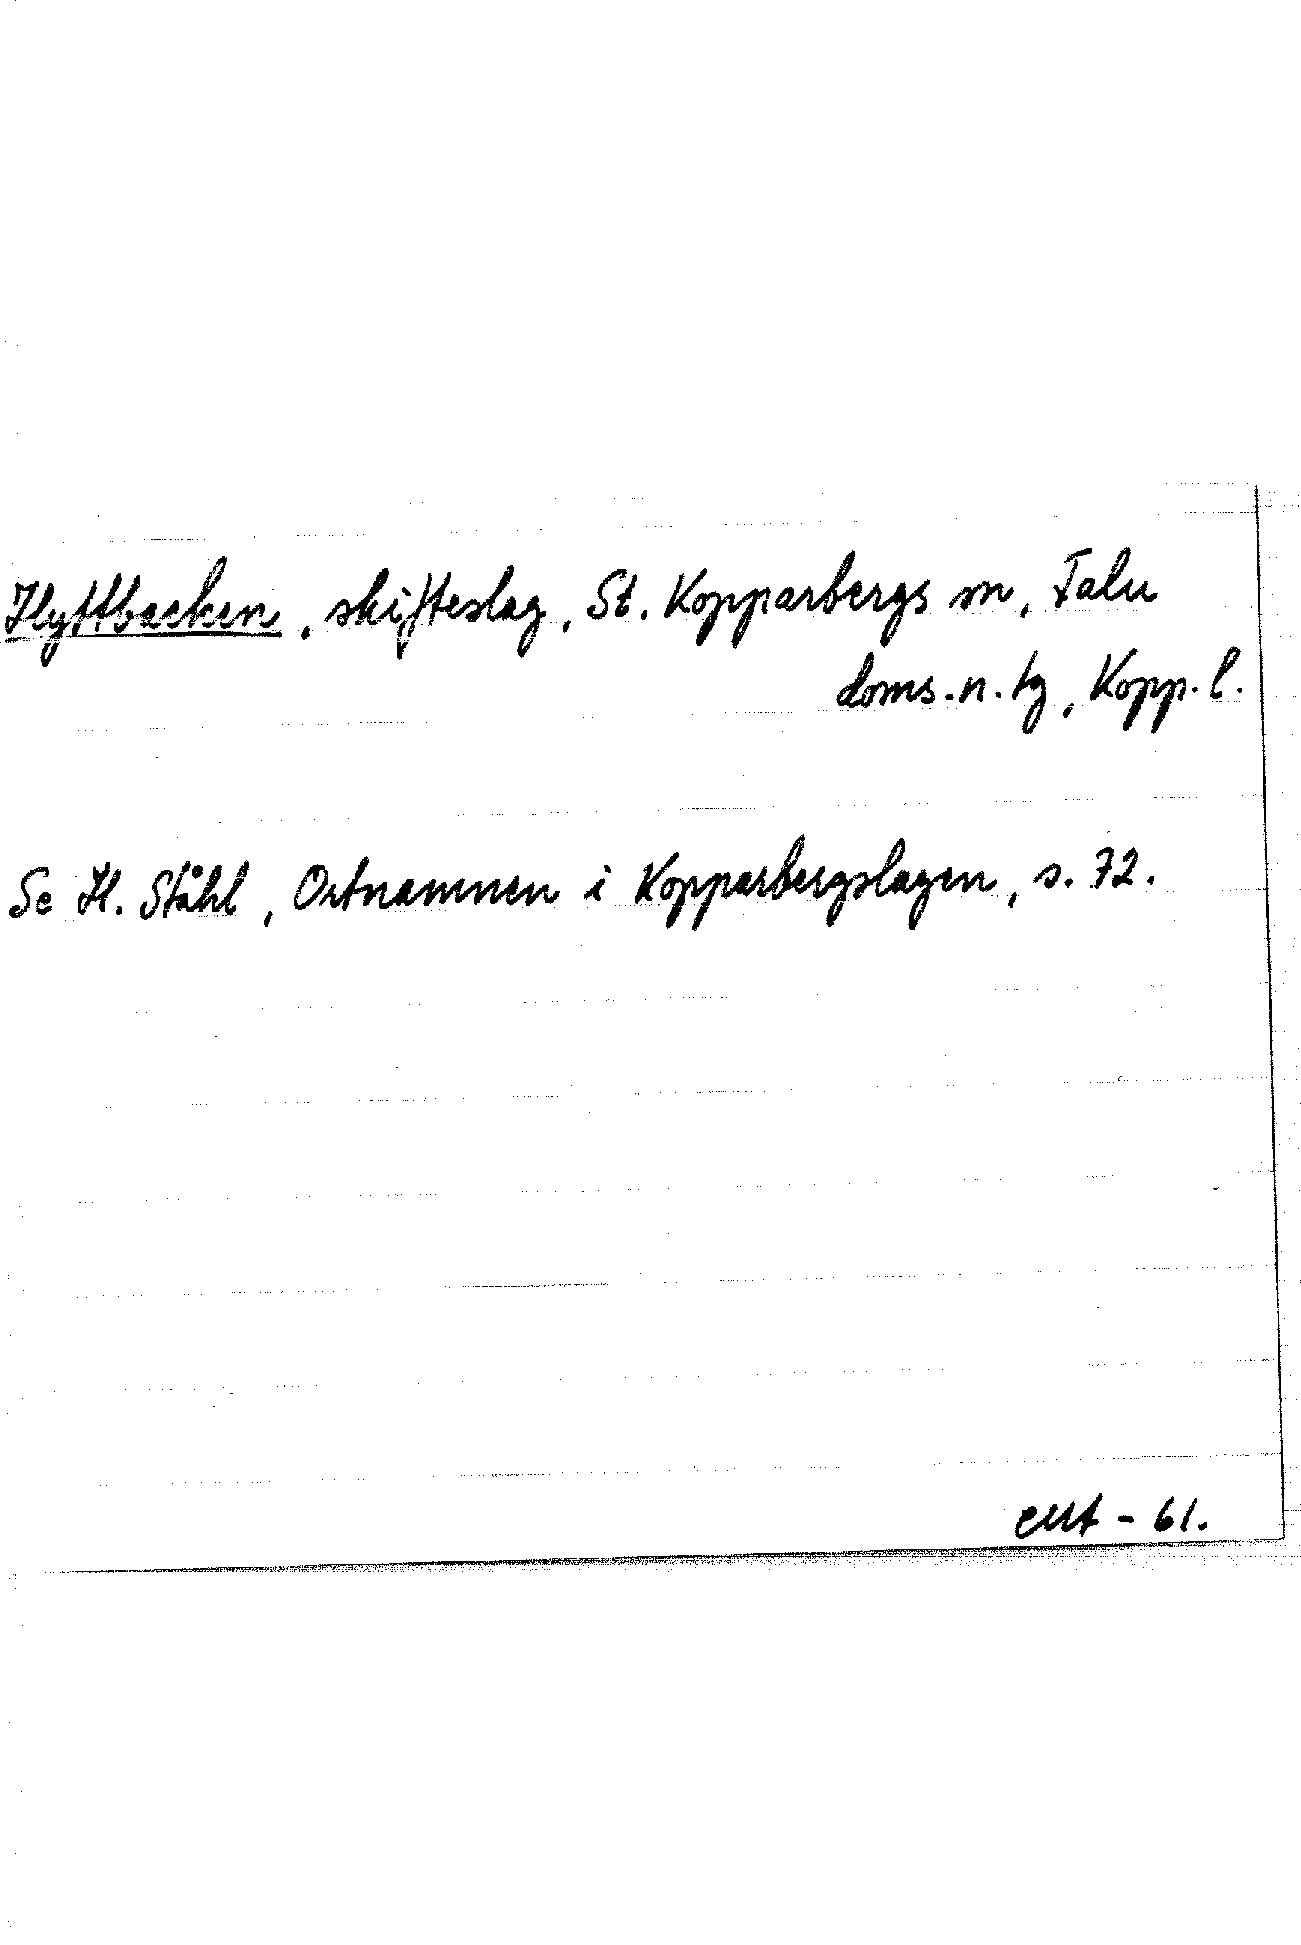 Hyttbacken, skifteslag, St. Kopparbergs sn, Falu
doms.n. tg, Kopp. l.
Se H. Ståhl, Ortnamnen i Kopparbergslagen, s. 72.
- 61.